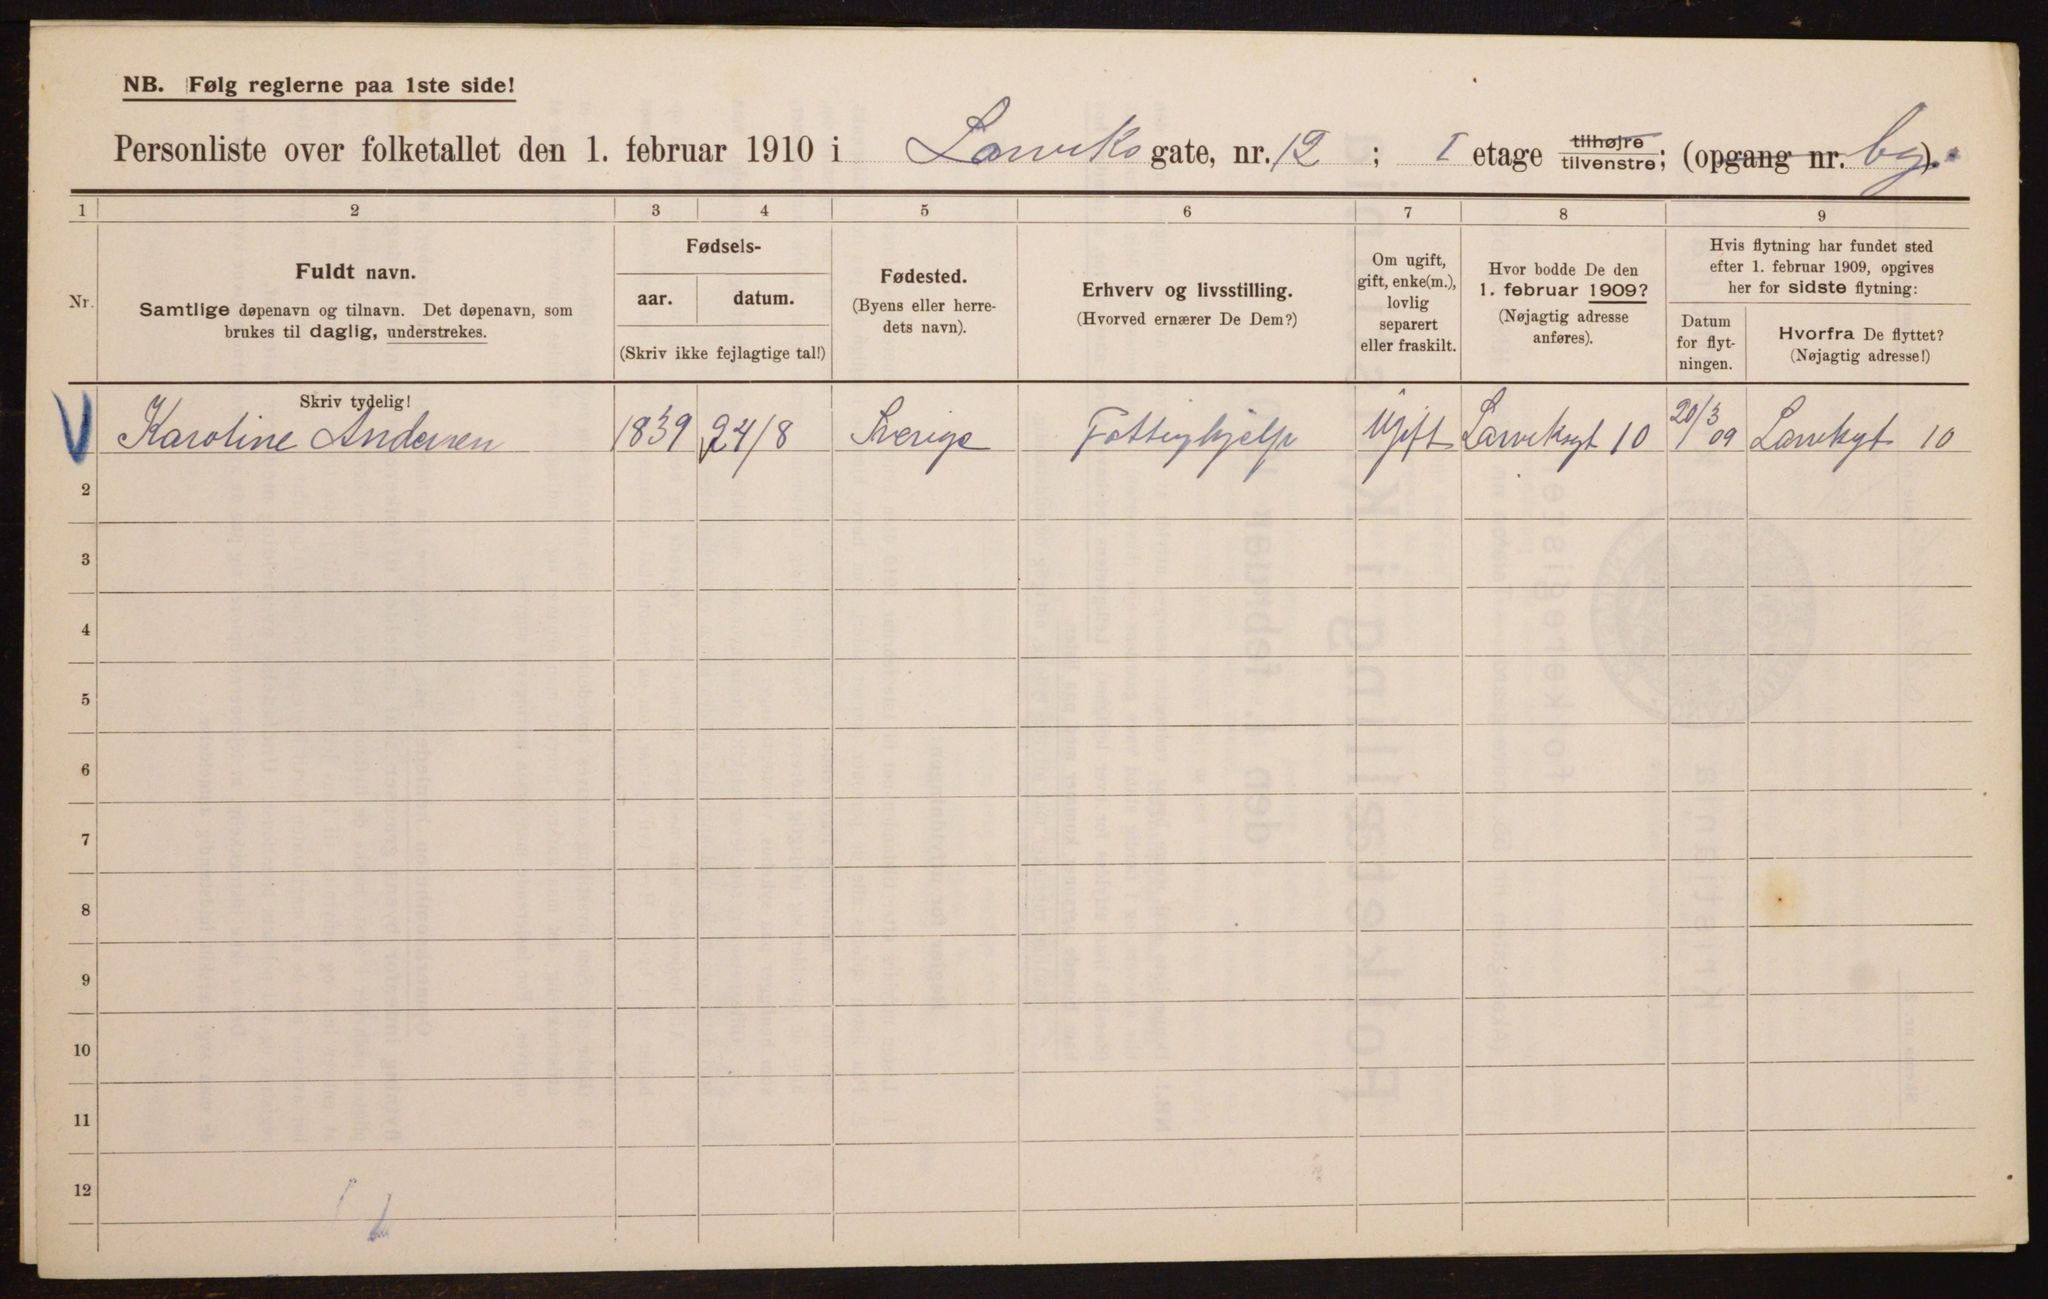 NB. Følg reglerne paa 1ste side!
Personliste over folketallet den 1. februar 1910 i Larviks gate, nr. 12 ; I etage tilhøjre tilvenstre; (opgang nr. bg.).
1 2 3 4 5 6 7 8 9
Nr.
Fuldt navn.
Samtlige døpenavn og tilnavn. Det døpenavn, som
brukes til daglig, understrekes.
Fødsels-
aar. datum.
(Skriv ikke fejlagtige tal!)
Fødested.
(Byens eller herre-
dets navn).
Erhverv og livsstilling.
(Hvorved ernærer De Dem?)
Om ugift,
gift, enke(m.),
lovlig
separert
eller fraskilt.
Hvor bodde De den
1. februar 1909?
(Nøjagtig adresse
anføres).
Hvis flytning har fundet sted
efter 1. februar 1909, opgives
her for sidste flytning:
Datum
for flyt-
ningen.
Hvorfra De flyttet?
(Nøjagtig adresse!)
Skriv tydelig!
1 Karoline Andersen 1839 24/8 Sverige Fattighjelp Ugift Larviksgt 10 20/3 09 Larvikgt 10
2
3
4
5
6
7
8
9
10
11
12